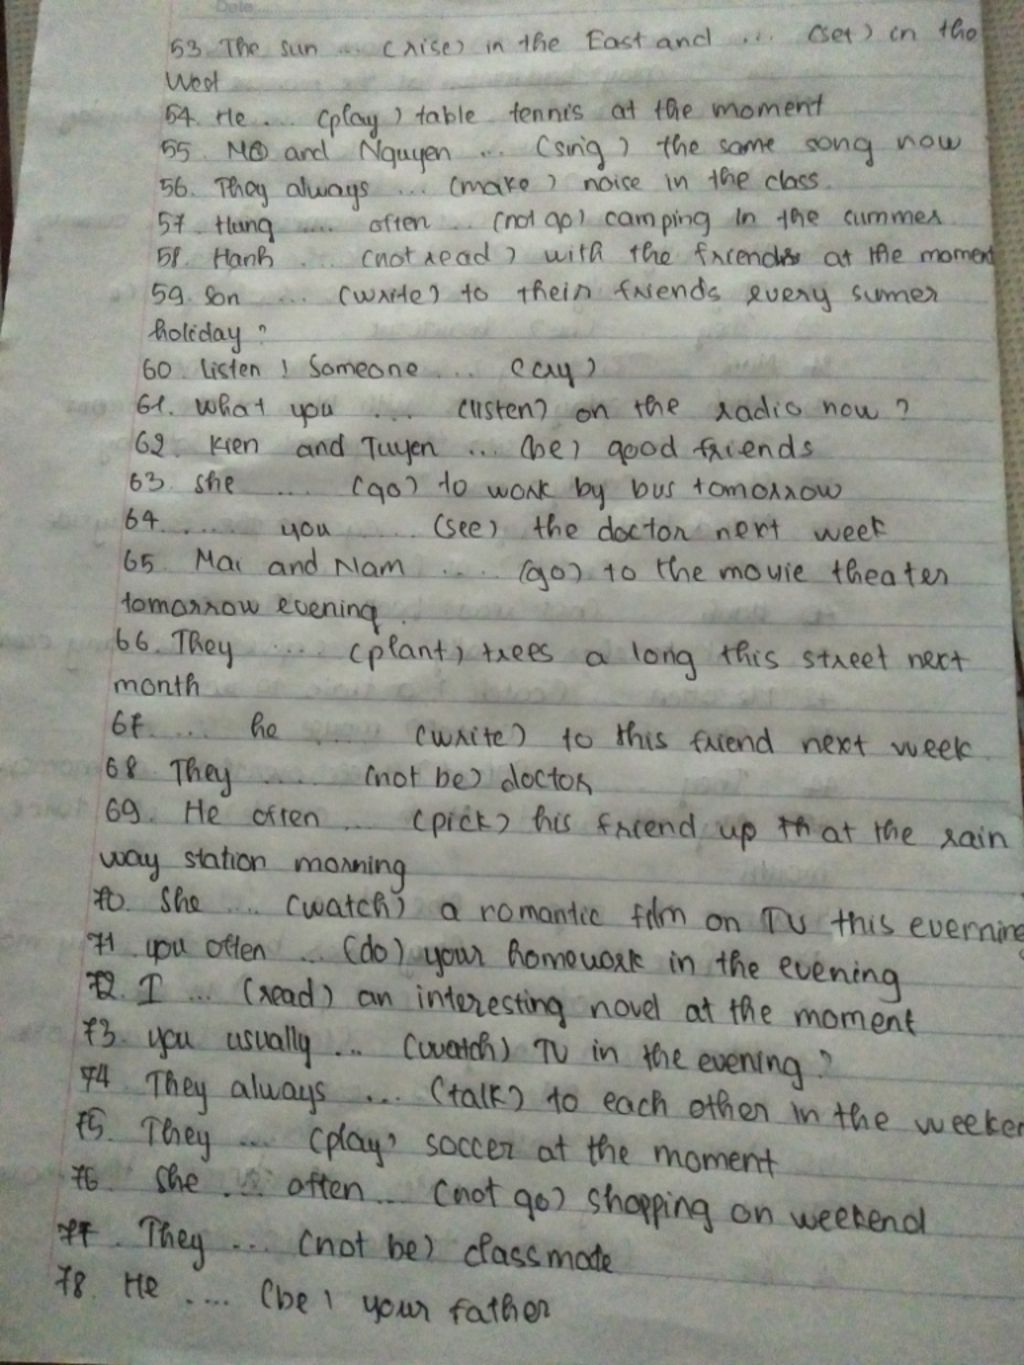 Date
53. The sun ... (rise) in the East and ... (set) in the
West
54. He .... (play) table tennis at the moment
55. and Nguyen ... (sing) the same song now
56. They always ... (make) noise in the class.
57. Hung ..... often ... (not go) camping in the summer
58. Hanh .... (not read) with the friends at the moment
59. Son .... (write) to their friends every sumer
holiday?
60. Listen! Someone .... (cry)
61. What you .... (listen) on the radio now?
62. Kien and Tuyen ... (be) good friends
63. she .... (go) to work by bus tomorrow
64. ...... you ...... (see) the doctor next week
65. Mai and Nam ..... (go) to the movie theater
tomorrow evening.
66. They ..... (plant) trees a long this street next
month
67. .... he ..... (write) to this friend next week
68 They ..... (not be) doctor
69. He often .... (pick) his friend up at the rain
way station morning
70. She .... (watch) a romantic film on TV this everning
71 you often ... (do) your homework in the evening
72. I ... (read) an interesting novel at the moment
73. you usually ... (watch) TV in the evening?
74 They always ... (talk) to each other in the
75. They .... (play) soccer at the moment
76. She .... often ... (not go) shopping on weekend
77. They .... (not be) classmate
78. He .... (be) your father